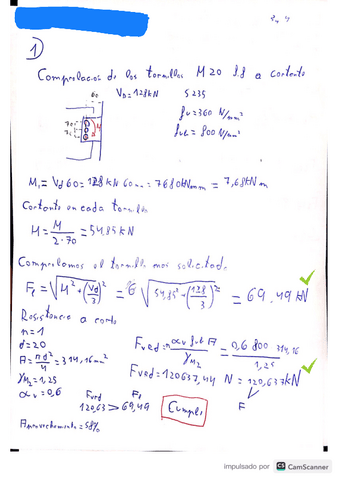 1
Comprobación de los tornillos M20 8.8 a cortante
60
Vd = 128kN S235
fu=360 N/mm²
fub=800 N/mm²
M1 = Vd 60 = 128 kN 60mm = 7680kNmm = 7,68kN m
Cortante en cada tornillo
H = M / 2·70 = 54,85 kN
Comprobamos el tornillo más solicitado
F1 = √(H² + (Vd/3)²) = √(54,85² + (128/3)²) = 69.49 kN
Resistencia a corte
n=1
d=20
A = πd²/4 = 314,16mm²
γM2=1,25
αv=0,6
Fvrd = n αv fub A / γM2 = 0,6 800 314,16 / 1,25
Fvrd = 120637,44 N = 120,637kN
Fvrd F1
120,63 > 69,49 Cumple
F
Aprovechamiento=58%
impulsado por CS CamScanner